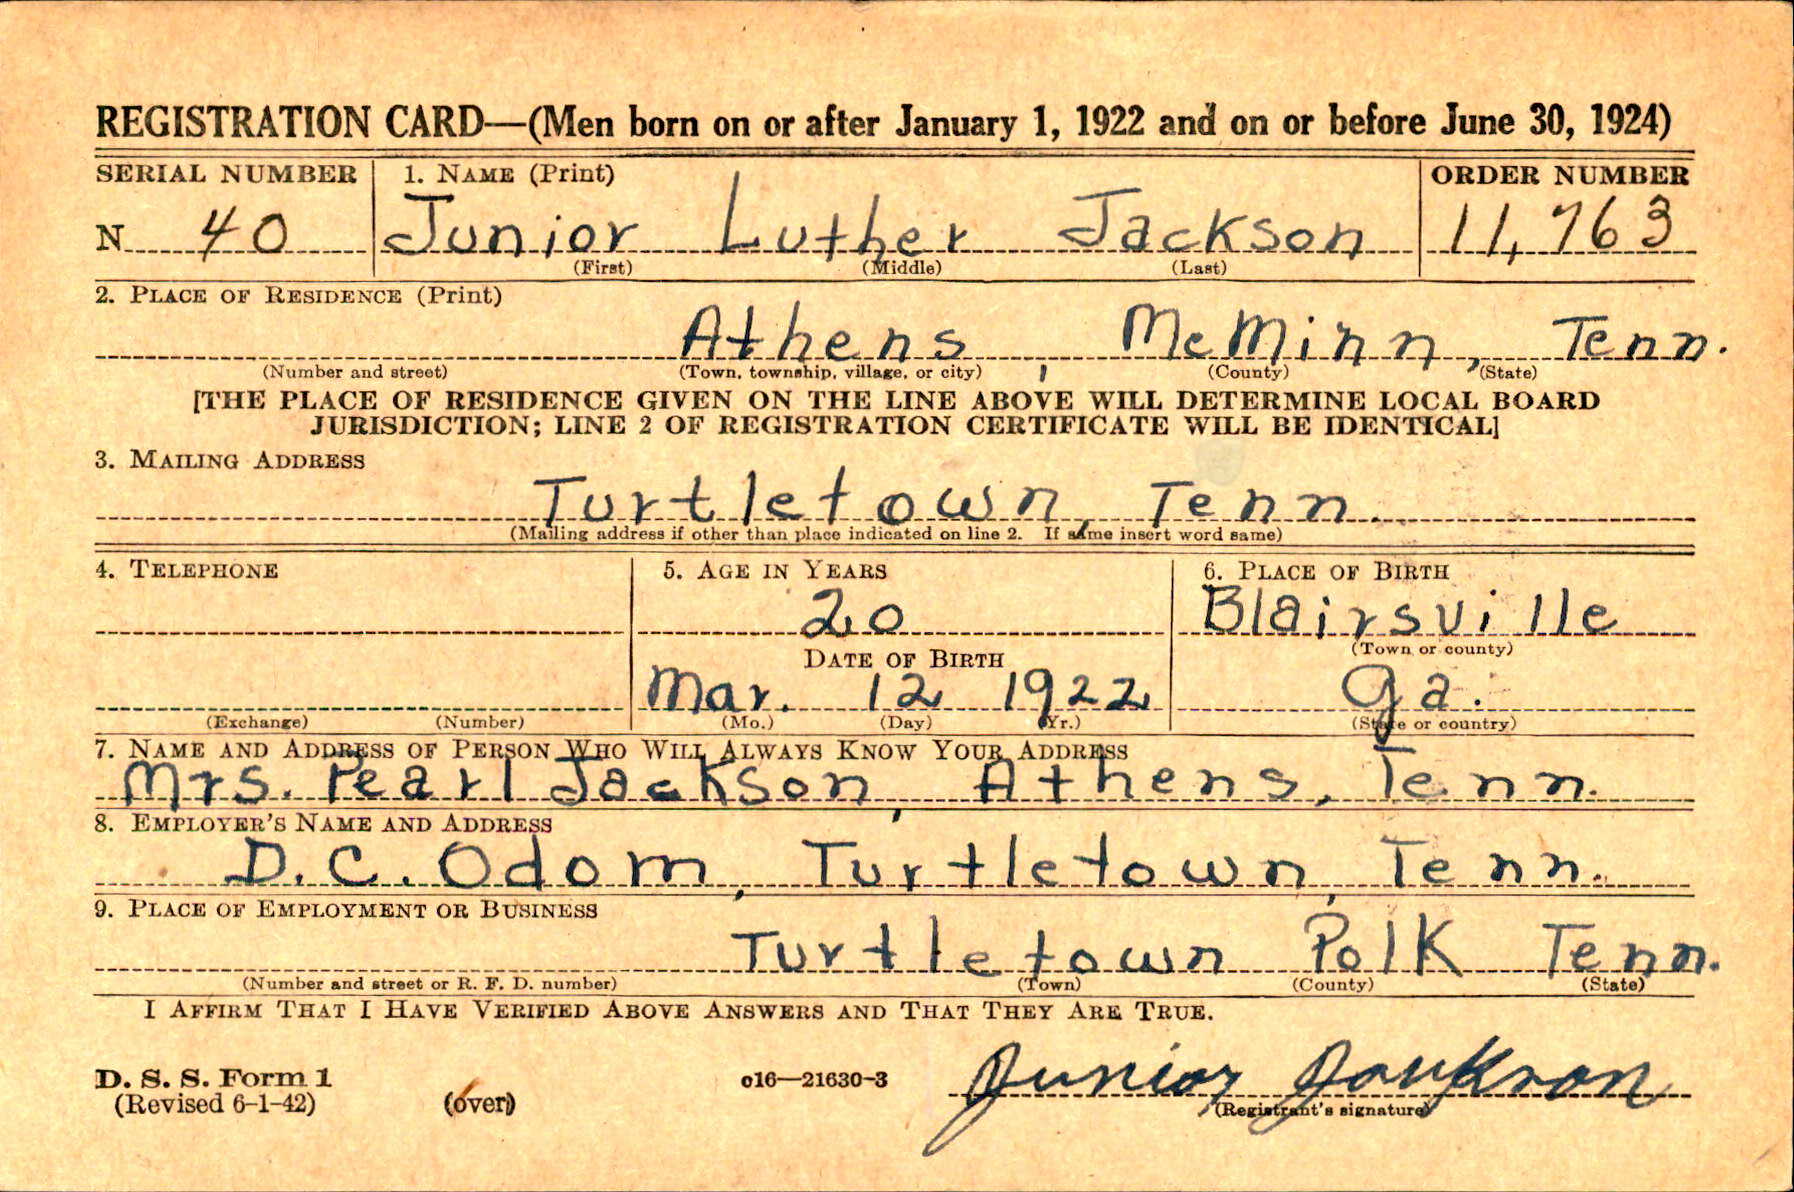 REGISTRATION CARD—(Men born on or after January 1, 1922 and on or before June 30, 1924)
SERIAL NUMBER 1. NAME (Print) ORDER NUMBER
N 40 Junior Luther Jackson 11,763
(First) (Middle) (Last)
2. PLACE OF RESIDENCE (Print)
Athens, McMinn, Tenn.
(Number and street) (Town, township, village, or city) (County) (State)
[THE PLACE OF RESIDENCE GIVEN ON THE LINE ABOVE WILL DETERMINE LOCAL BOARD
JURISDICTION; LINE 2 OF REGISTRATION CERTIFICATE WILL BE IDENTICAL]
3. MAILING ADDRESS
Turtletown, Tenn.
(Mailing address if other than place indicated on line 2. If same insert word same)
4. TELEPHONE 5. AGE IN YEARS 6. PLACE OF BIRTH
20 Blairsville
DATE OF BIRTH (Town or county)
Mar. 12 1922 Ga.
(Exchange) (Number) (Mo.) (Day) (Yr.) (State or country)
7. NAME AND ADDRESS OF PERSON WHO WILL ALWAYS KNOW YOUR ADDRESS
Mrs. Pearl Jackson, Athens, Tenn.
8. EMPLOYER'S NAME AND ADDRESS
D. C. Odom, Turtletown, Tenn.
9. PLACE OF EMPLOYMENT OR BUSINESS
Turtletown Polk Tenn.
(Number and street or R. F. D. number) (Town) (County) (State)
I AFFIRM THAT I HAVE VERIFIED ABOVE ANSWERS AND THAT THEY ARE TRUE.
D. S. S. Form 1
(Revised 6-1-42) (over) c16—21630-3 Junior Jackson
(Registrant's signature)